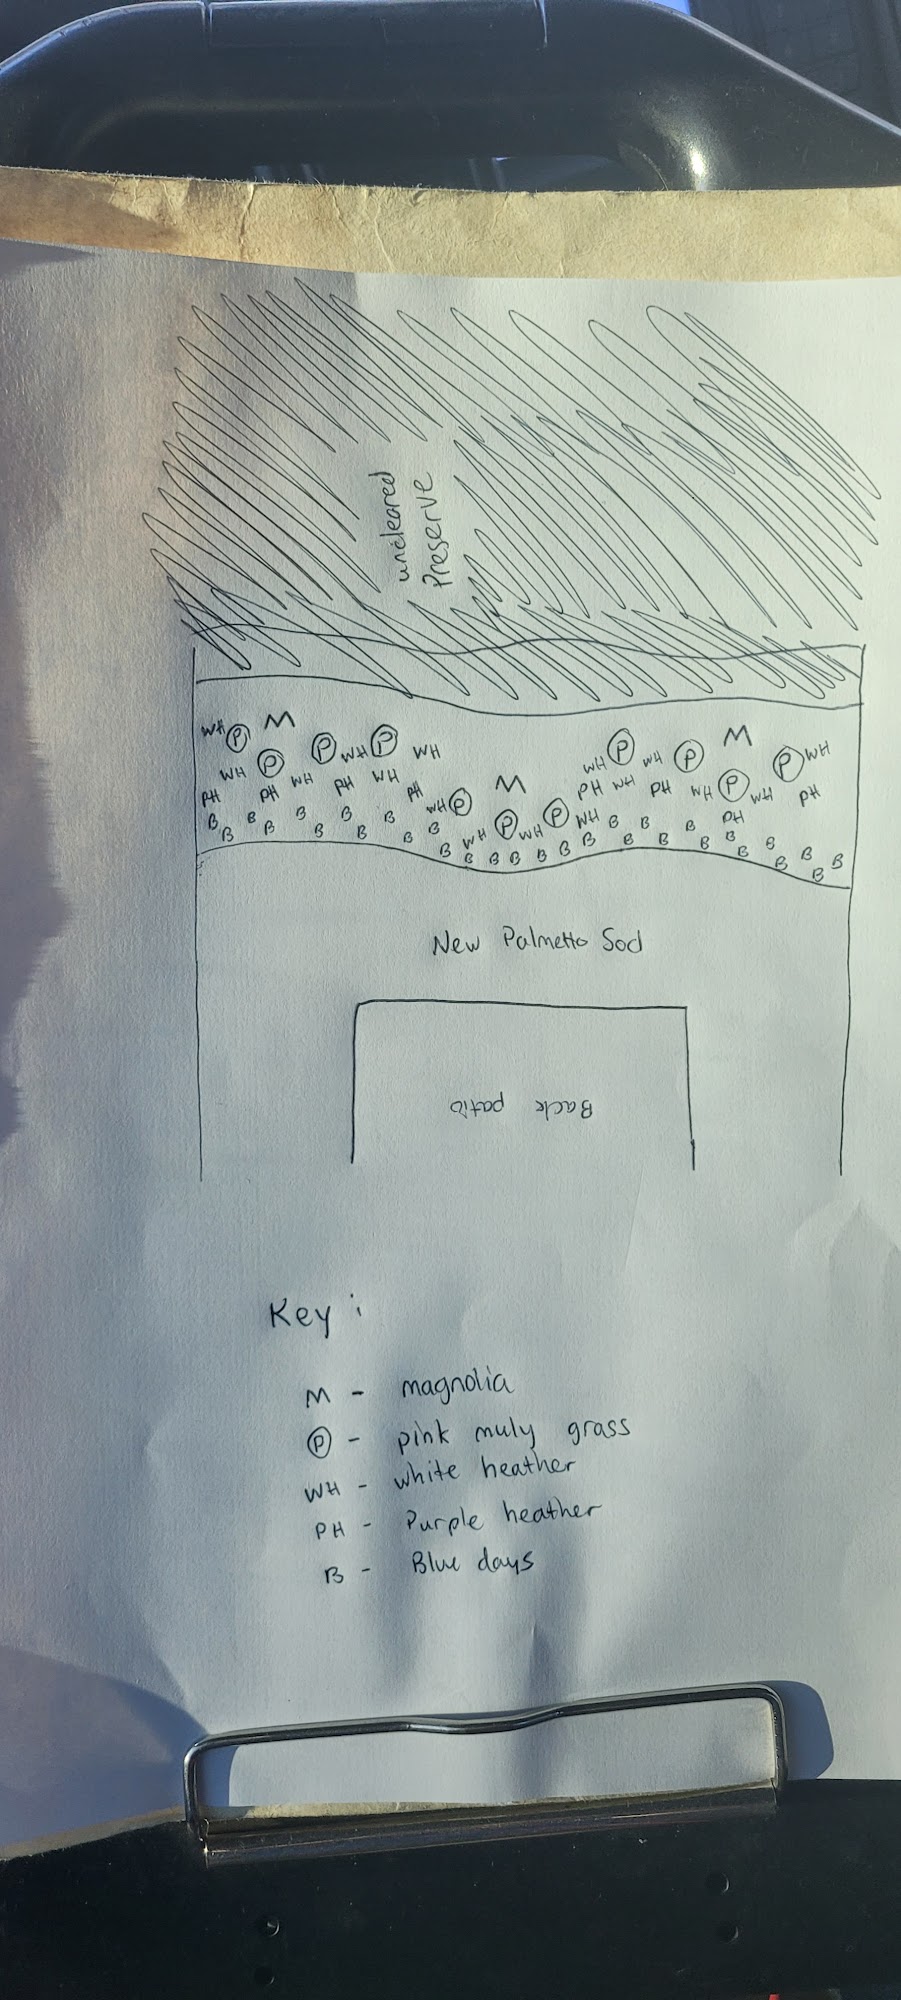 uncleared
Preserve
WH P M P WH P WH WH P WH P M P WH
WH P WH PH WH PH M PH WH PH WH P WH PH
PH PH WH P WH P WH P WH PH
B B B B B B B B B B B B B B B B B B B B B B B B B B B B B B B
New Palmetto Sod
Back patio
Key :
M - magnolia
P - pink muly grass
WH - white heather
PH - Purple heather
B - Blue days